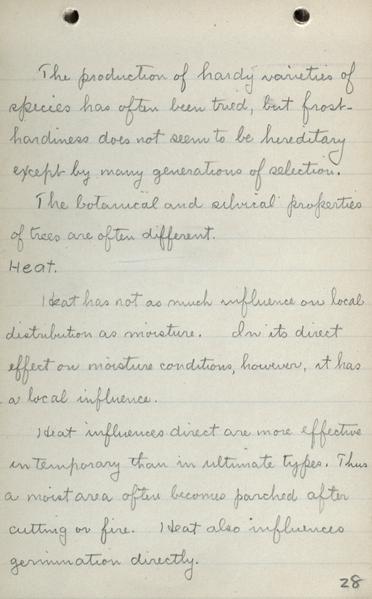 The production of hardy varieties of
species has often been tried, but frost-
hardiness does not seem to be hereditary
except by many generations of selection.
The botanical and silvical properties
of trees are often different.
Heat.
Heat has not as much influence on local
distribution as moisture. In its direct
effect on moisture conditions, however, it has
a local influence.
Heat influences direct are more effective
in temporary than in ultimate types. Thus
a moist area often becomes parched after
cutting or fire. Heat also influences
germination directly.
28